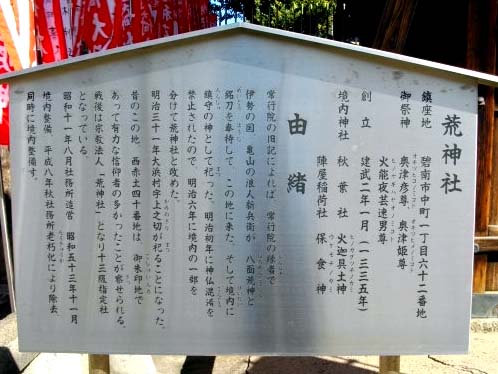 荒神社
鎮座地 碧南市中町一丁目六十二番地
御祭神 奥津彦尊 奥津姫尊
火能夜芸速男尊
創立 建武二年一月(一三三五年)
境内神社 秋葉社 火迦具土神
陣屋稲荷社 保食神
由緒
常行院の旧記によれば 常行院の縁者で
伊勢の国 亀山の浪人新兵衛が 八面荒神と
銘刀を奉持して この地に来た。そして境内に
鎮守の神として祀った。明治初年に神仏混淆を
禁止されたので 明治六年に境内の一部を
分けて荒神社と改めた。
明治三十一年大浜村字上之切が祀ることになった。
昔のこの地 西赤土四十番地は、御朱印地で
あって有力な信仰者の多かったことが察せられる。
戦後は宗教法人「荒神社」となり十三級指定社
となっている。
昭和十一年八月社務所造営 昭和五十三年十一月
境内整備 平成八年秋社務所老朽化により除去
同時に境内整備す。